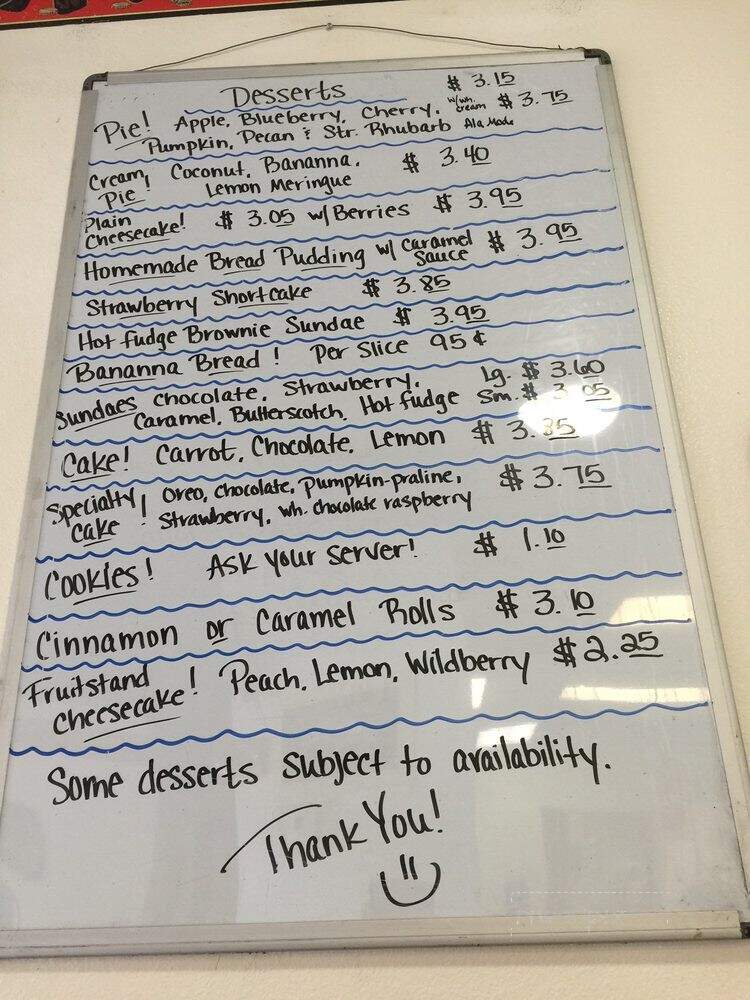 Desserts $ 3.15
Pie! Apple, Blueberry, Cherry, w/wh. cream $ 3.75
Pumpkin, Pecan & Str. Rhubarb Ala Mode
Cream Pie! Coconut, Bananna, $ 3.40
Lemon Meringue
Plain Cheesecake! $ 3.05 w/ Berries $ 3.95
Homemade Bread Pudding w/ Caramel Sauce $ 3.95
Strawberry Shortcake $ 3.85
Hot fudge Brownie Sundae $ 3.95
Bananna Bread! Per Slice 95¢
Sundaes Chocolate, Strawberry, Lg. $ 3.60
Caramel, Butterscotch, Hot fudge Sm. $ 3.05
Cake! Carrot, Chocolate, Lemon $ 3.85
Specialty Cake! Oreo, Chocolate, Pumpkin-praline, $ 3.75
Strawberry, wh. chocolate raspberry
Cookies! Ask your server! $ 1.10
Cinnamon or Caramel Rolls $ 3.10
Fruitstand Cheesecake! Peach, Lemon, Wildberry $ 2.25
Some desserts subject to availability.
Thank You!